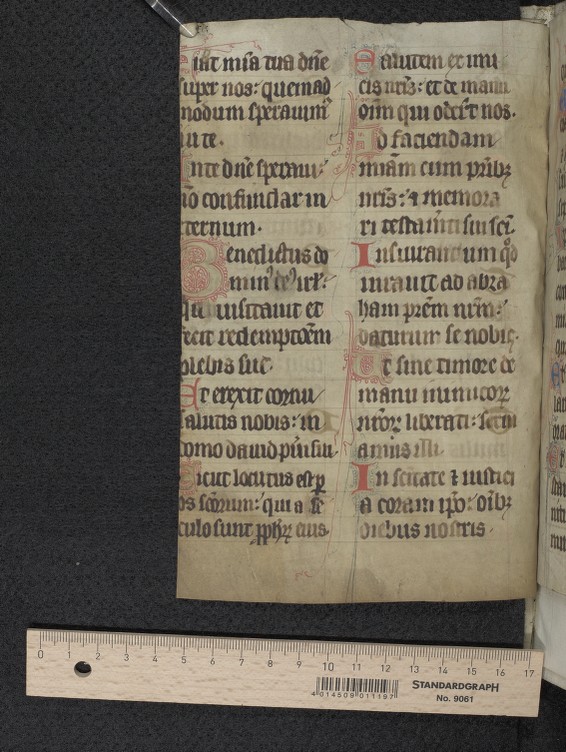 iat mīa tua dn̄e
super nos: quemad
modum speravim᷒
in te.
In te dn̄e speravi:
nō confundar in
eternum.
Benedictus do
min᷒ de᷒ isrl̄:
qui visitavit et
fecit redemptōem
plebis sue.
Et erexit cornu
salutis nobis: in
domo david pūi sui.
Sicut locutus est p̄
os scōrum: qui a se
culo sunt ꝓphꝝ eius.
Salutem ex ini
cis nrīs: et de manu
oīm qui odert̄ nos.
Ad faciendam
miām cum prībꝫ
nrīs: ⁊ memora
ri testamīti sui sci.
Iusiurandum qd̄
iuravit ad abra
ham prēm nrm̄:
daturum se nobis.
Ut sine timore de
manu inimicoꝝ
nrōꝝ liberati: servi
amus illi.
In scītate ⁊ iustici
a coram ip̄o: oībꝫ
diebus nostris.
0 1 2 3 4 5 6 7 8 9 10 11 12 13 14 15 16 17
4 014509 011197
STANDARDGRAPH
No. 9061